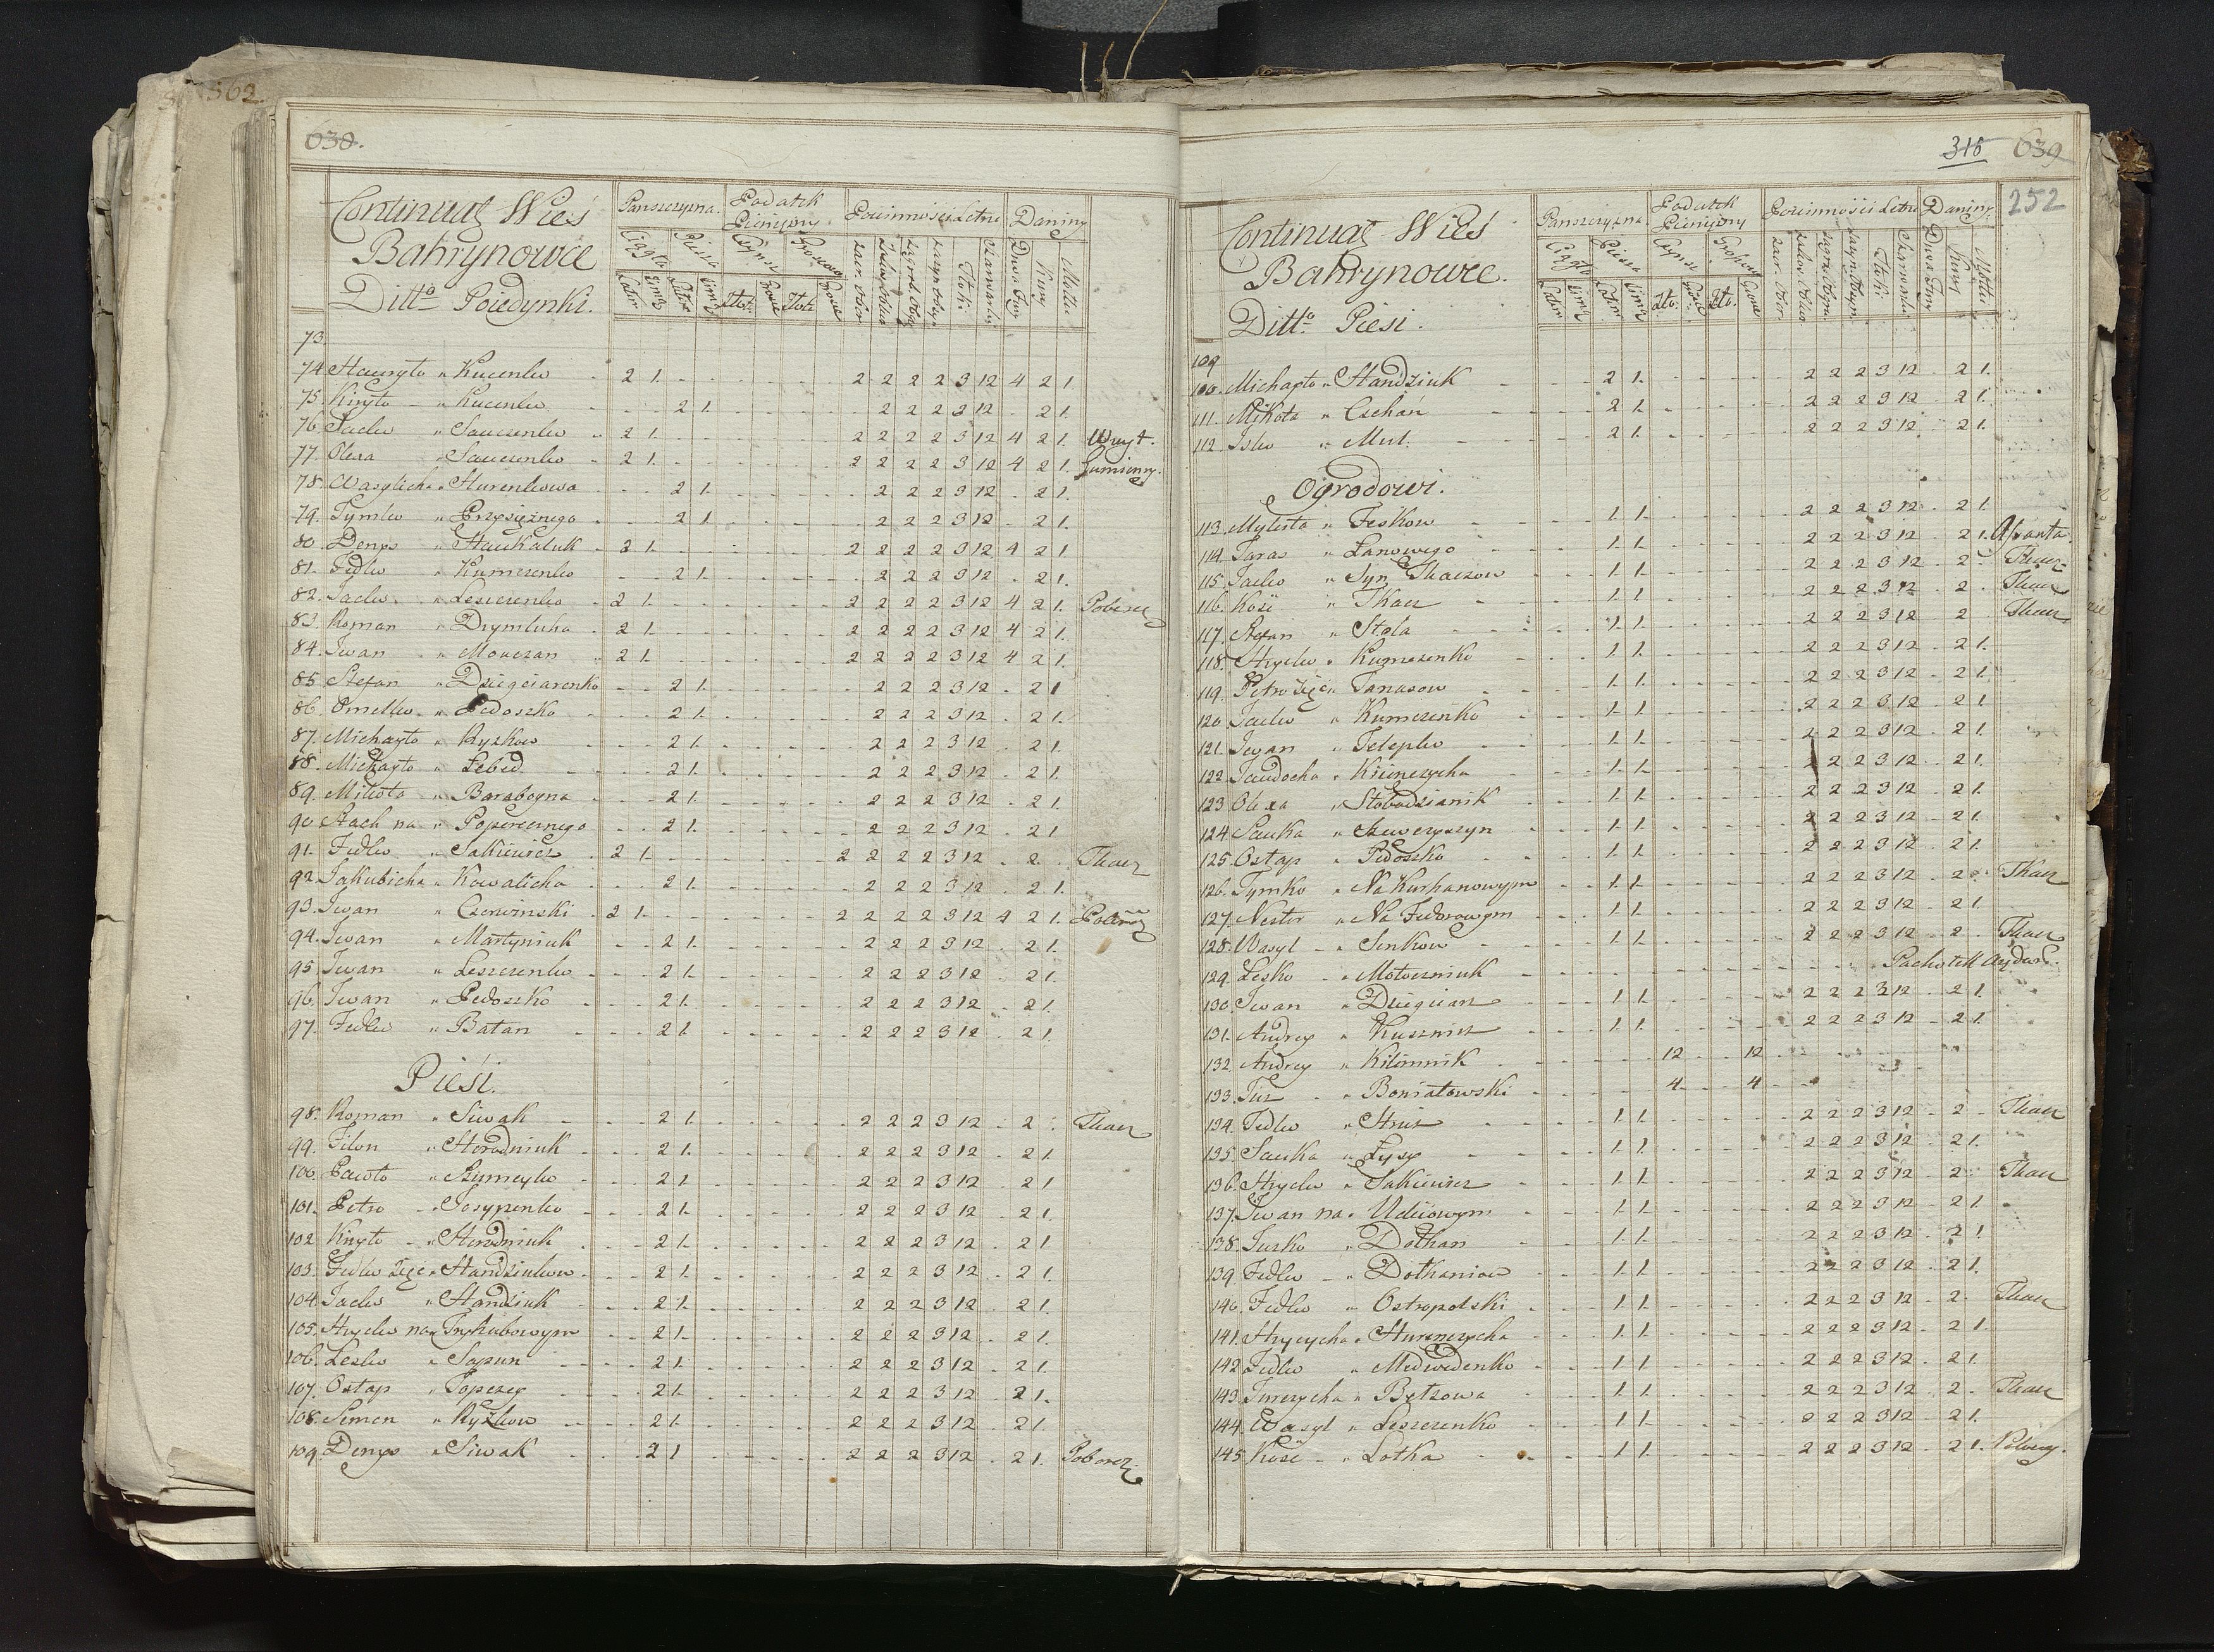 562.
638.
Continuat Wieś
Bahrynowce
Ditto Poiedynki.
Panszczyzna. Podatek Pieniężny Powinności Letnie Daniny
73.
74. Hawryło " Kucenko - 2 1. 2 2 2 2 3 12 4 2 1
75. Kiryło " Kucenko 2 1. 2 2 2 3 12 - 2 1.
76. Jacko " Sauczenko 2 1. 2 2 2 2 3 12 4 2 1. Wuyt.
77. Olexa " Sauczenko - 2 1. 2 2 2 2 3 12 4 2 1. Gumienny.
78. Wasylicha " Hurenkowa 2 1. 2 2 2 3 12 - 2 1.
79. Tymko " Przysiężnego 2 1. 2 2 2 3 12 - 2 1.
80. Denys " Haukaluk 2 1. 2 2 2 2 3 12 4 2 1
81. Fedko " Kumezenko 2 1. 2 2 2 3 12 - 2 1.
82. Jacko " Leszczenko 2 1. 2 2 2 2 3 12 4 2 1.
83. Roman " Drymluha 2 1. 2 2 2 2 3 12 4 2 1.
84. Iwan " Mouczan 2 1. 2 2 2 2 3 12 4 2 1.
85. Stefan " Dziegciarenko 2 1. 2 2 2 3 12 - 2 1
86. Omelko " Pedoszko 2 1. 2 2 2 3 12 - 2 1.
87. Michayło " Ryzkow 2 1. 2 2 2 3 12 - 2 1.
88. Michayło " Łebed 2 1. 2 2 2 3 12 - 2 1.
89. Mikoła " Barabogna 2 1. 2 2 2 3 12 - 2 1.
90 Stach na " Poperecznego 2 1. 2 2 2 3 12 - 2 1
91. Fedko " Sakiewicz 2 1. 2 2 2 2 3 12 - 2. Tkacz
92. Jakubicha " Kowalicha 2 1. 2 2 2 3 12 - 2 1.
93. Iwan " Czerwinski 2 1. 2 2 2 2 3 12 4 2 1.
94. Iwan " Martyniuk 2 1. 2 2 2 3 12 - 2 1.
95. Iwan " Leszczenko 2 1. 2 2 2 3 12 - 2 1.
96. Iwan " Pedoszko 2 1. 2 2 2 3 12 - 2 1.
97. Fedko " Bałan 2 1. 2 2 2 3 12 - 2 1.
Piesi.
98. Roman " Siwak 2 1. 2 2 2 3 12 - 2 Tkacz
99. Filon " Horodniuk 2 1. 2 2 2 3 12 - 2 1
100. Pawło " Szumeyko 2 1 2 2 2 3 12 - 2 1
101. Petro " Josypenko 2 1. 2 2 2 3 12 - 2 1.
102 Kiryło " Horodniuk 2 1. 2 2 2 3 12 - 2 1
103. Fedko Zięć " Handziukow 2 1. 2 2 2 3 12 - 2 1
104. Jacko " Handziuk 2 1. 2 2 2 3 12 - 2 1
105. Hrycko na " Trykubowym 2 1. 2 2 2 3 12 - 2 1.
106. Lesko " Sapun 2 1. 2 2 2 3 12 - 2 1.
107. Ostap " Topczey 2 1. 2 2 2 3 12 - 2 1.
108. Semen " Ryzkow 2 1. 2 2 2 3 12 - 2 1.
109. Denys " Siwak 2 1 2 2 2 3 12 - 2 1. Poborcz.
316 639
252
Continuat Wieś
Bahrynowce.
Ditto Piesi.
Panszczyzna Podatek Pieniężny Powinności Letnie Daniny
109
100. Michayło " Handziuk 2 1. 2 2 2 3 12 - 2 1.
111. Mikoła " Czehań 2 1. 2 2 2 3 12 - 2 1.
112. Isko " Mul. 2 1. 2 2 2 3 12 - 2 1.
Ogrodowi.
113. Mykita " Feskow 1. 1. 2 2 2 3 12 - 2 1.
114. Taras " Łanowego 1. 1. 2 2 2 3 12 - 2 1.
115. Jacko " Syn Tkaczow 1. 1. 2 2 2 3 12 - 2 Tkacz
116. Kość " Tkacz 1. 1. 2 2 2 3 12 - 2 Tkacz
117. Stefan " Stola 1. 1. 2 2 2 3 12 - 2 Tkacz
118. Hrycko " Kumezenko 1. 1. 2 2 2 3 12 - 2 1.
119. Petro Zięć " Tanasow 1. 1. 2 2 2 3 12 - 2 1.
120. Jacko " Kumezenko 1. 1. 2 2 2 3 12 - 2 1
121. Iwan " Telepko 1. 1. 2 2 2 3 12 - 2 1.
122. Jaudocha " Krimczycha 1. 1. 2 2 2 3 12 - 2 1.
123 Olexa " Słobodzianik 1. 1. 2 2 2 3 12 - 2 1.
124. Sauka " Szewczyszyn 1. 1. 2 2 2 3 12 - 2 1.
125. Ostap " Pedoszko 1. 1. 2 2 2 3 12 - 2 1.
126. Tymko " Na Kurhanowym 1. 1. 2 2 2 3 12 - 2 Tkacz
127. Nestor " Na Fedorowym 1. 1. 2 2 2 3 12 - 2 1.
128. Wasyl " Senkow 1. 1. 2 2 2 3 12 - 2 Tkacz
129. Lesko " Motoczniuk Pachołek
130. Iwan " Dziegciarz 1. 1. 2 2 2 3 12 - 2 1.
131. Andrey " Kusznirz 1. 1. 2 2 2 3 12 - 2 1.
132. Andrey " Kilimnik 12 12
133. Jur " Boniatowski 4 4
134. Fedko " Struz 1. 1. 2 2 2 3 12 - 2 Tkacz
135. Sauka " Łysy 1. 1. 2 2 2 3 12 - 2 1.
136. Hrycko " Sakiewicz 1. 1. 2 2 2 3 12 - 2 Tkacz
137. Iwan na " Udiiowym 1. 1. 2 2 2 3 12 - 2 1.
138. Jurko " Dołhan 1. 1. 2 2 2 3 12 - 2 1
139. Fedko " Dołhaniow 1. 1. 2 2 2 3 12 - 2 1.
140. Fedko " Ostropolski 1. 1. 2 2 2 3 12 - 2 Tkacz
141. Hrycycha " Hurenczycha 1. 1. 2 2 2 3 12 - 2 1.
142. Fedko " Medwedenko 1. 1. 2 2 2 3 12 - 2 1.
143. Imczycha " Bełzowa 1. 1. 2 2 2 3 12 - 2 Tkacz
144. Wasyl " Leszczenko 1. 1. 2 2 2 3 12 - 2 1.
145 Kość " Lotka 1. 1. 2 2 2 3 12 - 2 1.